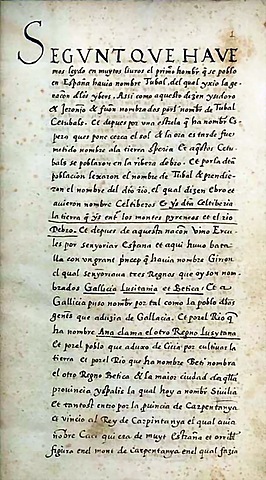 1
SEGUNT QUE HAVE
mos leydo en muytos liuros el primo hombre q̃ se poblo
en España hauia nombre Tubal, del qual yxio la ge
nacon dlos ybers. Assi como aquesto dizen ysidoro
& Jeronio & fuon nombrados porl nombr̃ de Tubal
Cetubals. Et depues por una estrela q̃ ha nombr̃ Es
pera que pone cerca el sol & la ora es tarde fue
metido nombre ala tierra Speria Et aq̃stos Cetu
bals se poblaron en la ribera debro. Et por la dta
poblacion lexaron el nombre de Tubal & prendie
ron el nombre del dio rio, el qual dizen Ebro et
auieron nombre Celtiberos & ys dta Celtiberia
la tierra q̃ ys entre los montes pyreneos et el rio
Debro. Et depues de aquesta nacon vino Ercu
les por senyoriar España et aqui huuo bata
lla con un grant pncep q̃ hauia nombre Girion
el qual senyoriaua tres Regnos que oy son nom
brados Gallicia Lusitania et Betica: Et a
Gallicia puso nombre por tal como la poblo dlas
gentes que aduzia de Gallacia. Et porel Rio q̃
ha nombre Ana clama el otro Regno Lusytana
Et porel poblo que aduxo de Cicia por cultiuar la
tierra et porel Rio que ha nombre Beti nombra
el otro Regno Betica & la maior ciudad daq̃lla
prouincia yspalis la qual hoy a nombr̃ Siuilia
Et tantost entro por la puincia de Carpentanya
& vincio al Rey de Carpintanya el qual auia
nõbre Caci qui era de muyt Estraña et orribl
figura en el mont de Carpentanya en el qual fazia